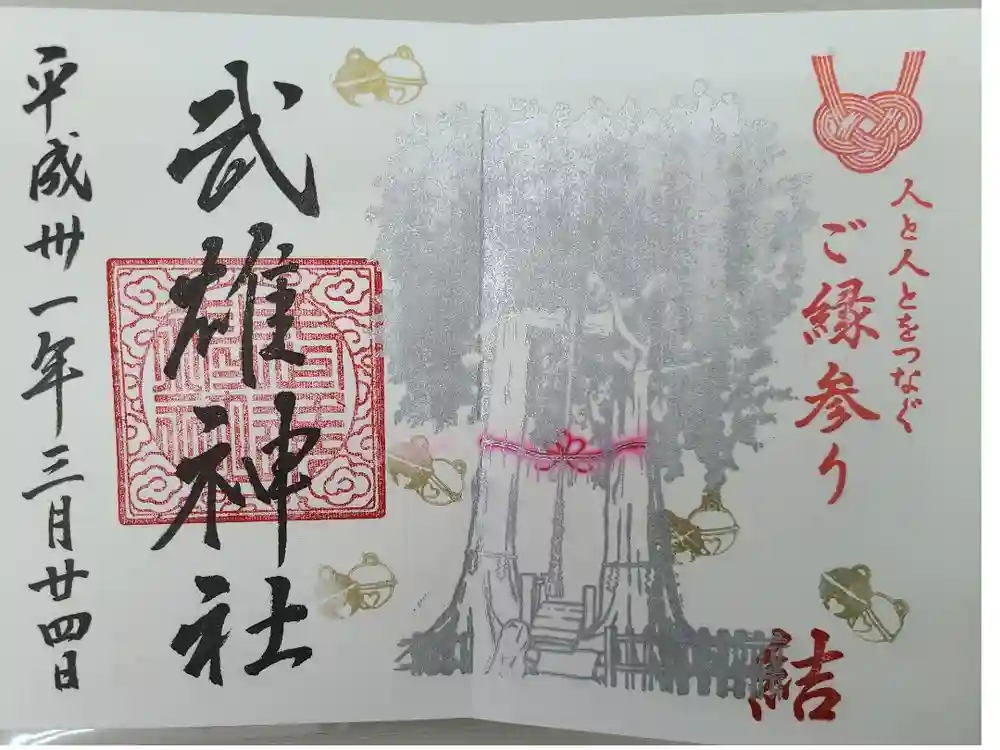 人と人とをつなぐ
ご縁参り
結
武雄神社
平成卅一年三月廿四日